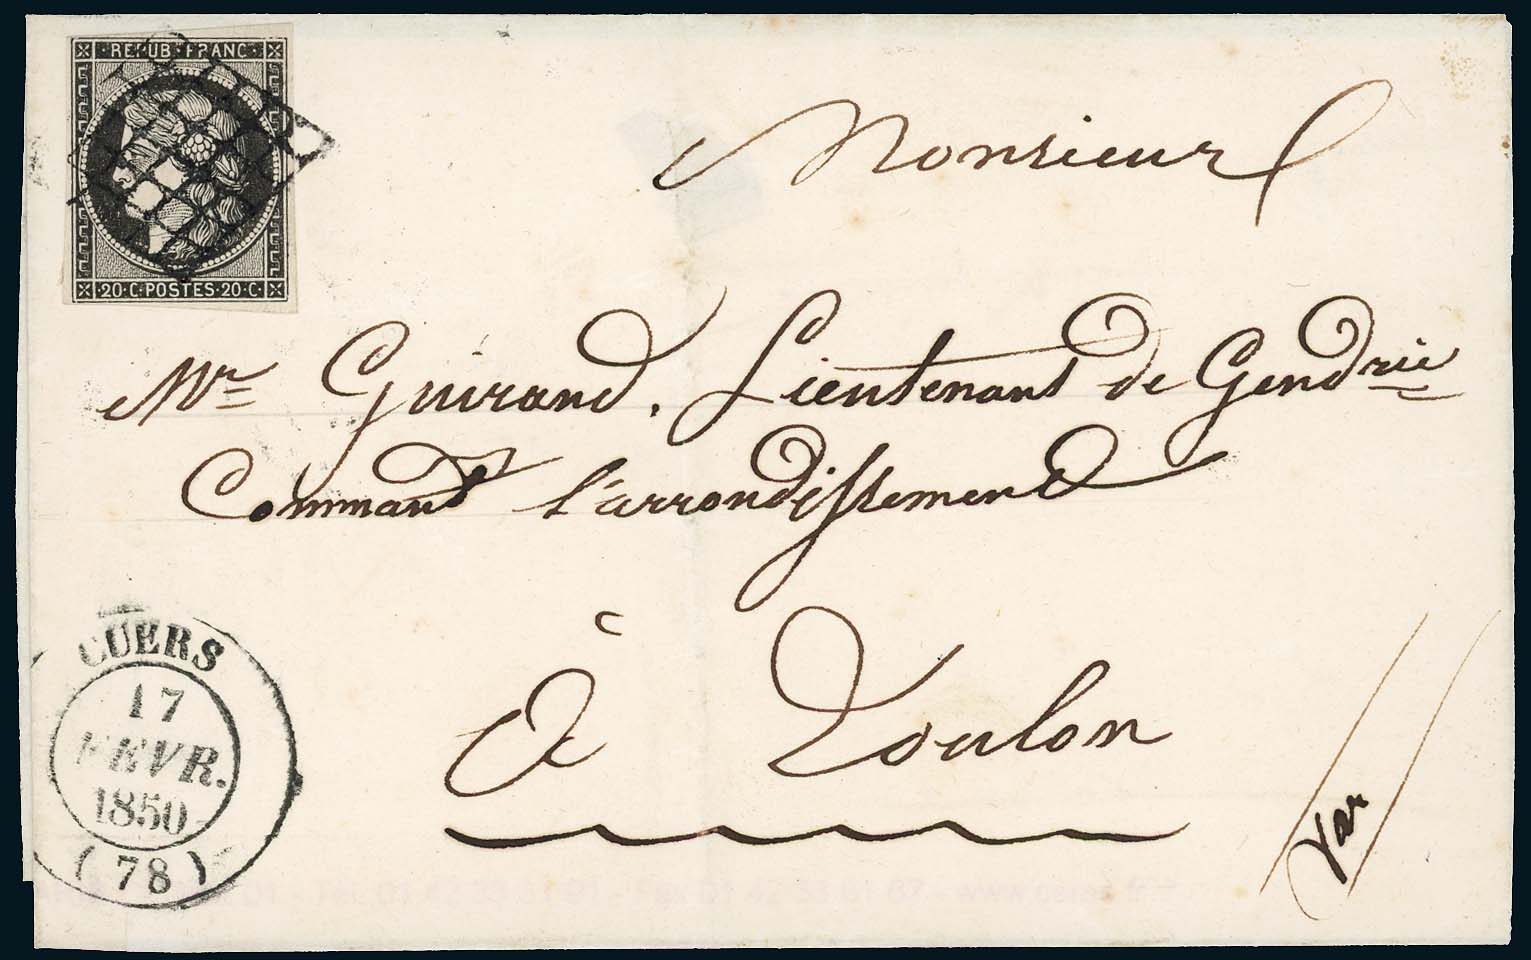 REPUB·FRANC·
·20·C·POSTES·20·C·
Monsieur
Mr Guirand, Lieutenant de Gendrie
Commant l'arrondissement
à Toulon
Var
CUERS
17
FEVR.
1850
(78)
01 - Tél. 01 42 33 31 - Fax 01 42 33 61 67 - www.ceres.fr